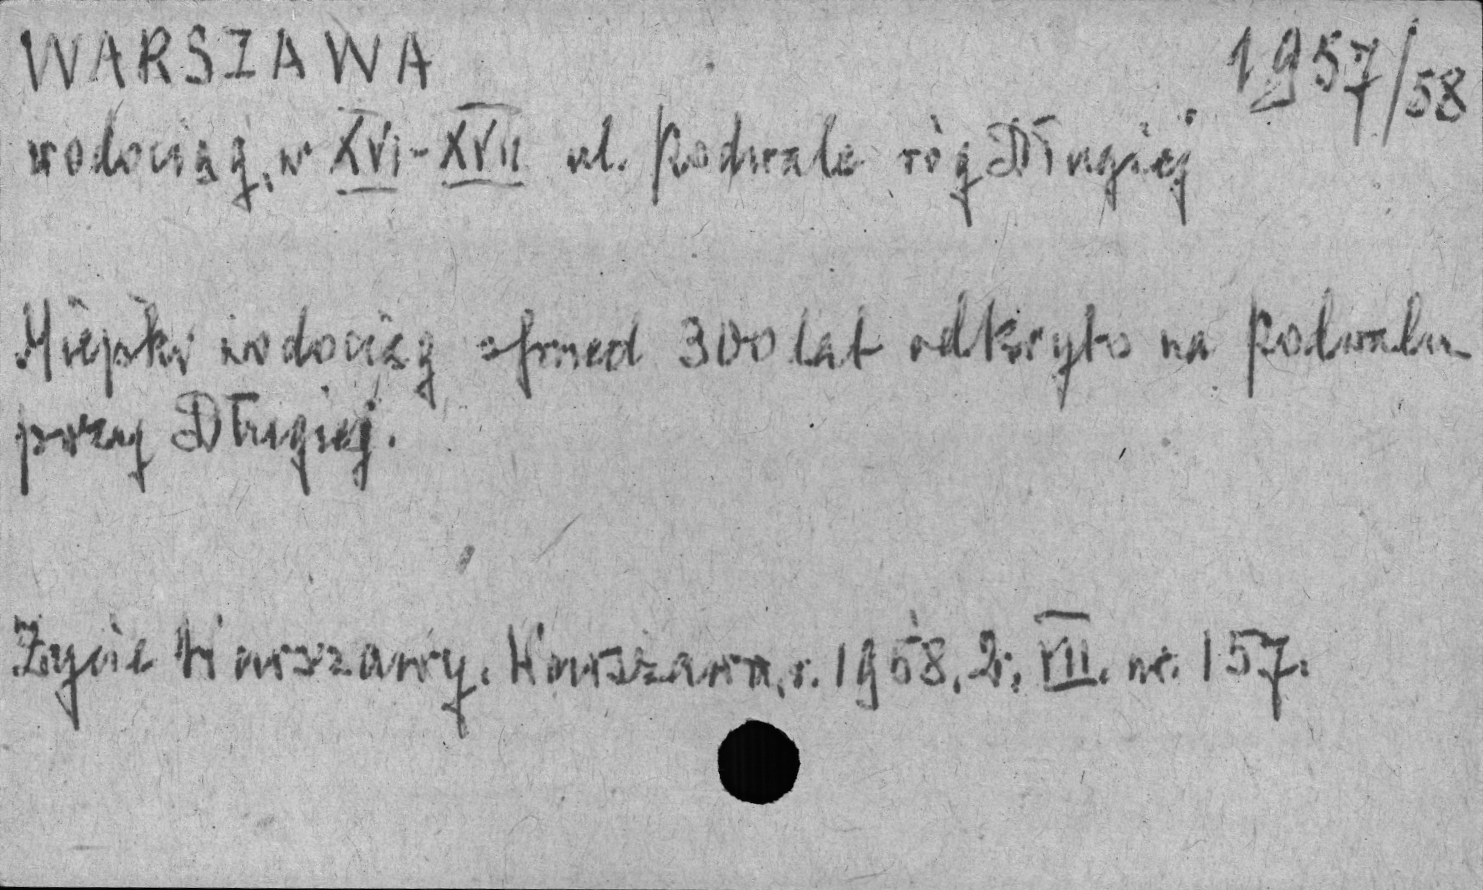 WARSZAWA 1957/58
wodociąg, w XVI-XVII ul. Podwale róg Długiej
Miejski wodociąg sprzed 300 lat odkryto na Podwalu
przy Długiej.
Życie Warszawy. Warszawa, r. 1958, 2, VII. nr. 157.